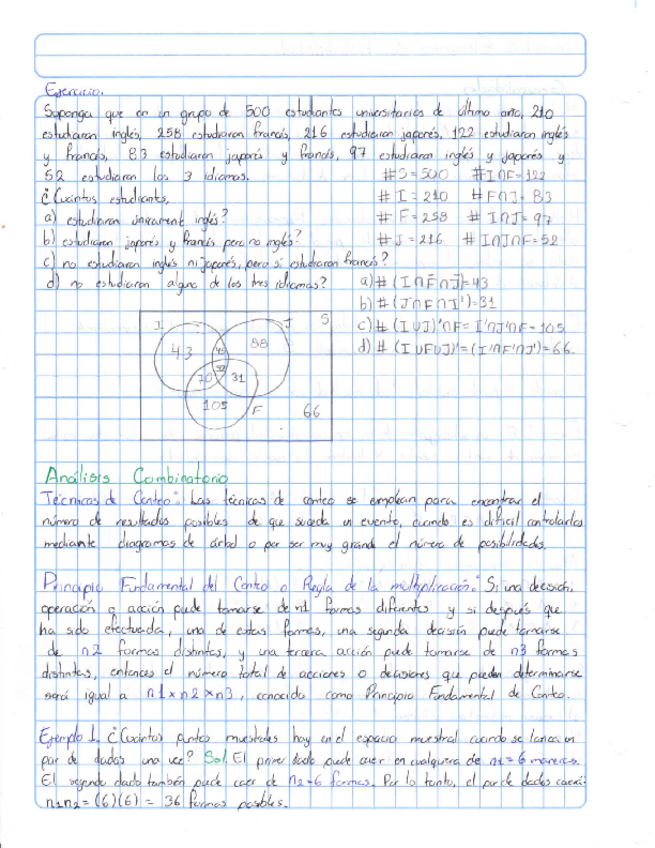 Ejercicio.
Suponga que en un grupo de 500 estudiantes universitarios de último año, 210
estudiaron inglés, 258 estudiaron francés, 216 estudiaron japonés, 122 estudiaron inglés
y francés, 83 estudiaron japonés y francés, 97 estudiaron inglés y japonés y
52 estudiaron los 3 idiomas. #S=500 #I∩F=122
¿Cuántos estudiantes, #I=210 #F∩J=83
a) estudiaron únicament inglés? #F=258 #I∩J=97
b) estudiaron japonés y francés pero no inglés? #J=216 #I∩J∩F=52
c) no estudiaron inglés ni japonés, pero sí estudiaron francés?
d) no estudiaron alguno de los tres idiomas? a) #(I∩F̄∩J̄)=43
b) #(J∩F∩I')=31
c) #(I∪J)'∩F=I'∩J'∩F=105
d) #(I∪F∪J)'=(I'∩F'∩J')=66.
I J S
43 45 88
52
70 31
105 F 66
Análisis Combinatorio
Técnicas de Conteo: Las técnicas de conteo se emplean para encontrar el
número de resultados posibles de que suceda un evento, cuando es difícil contarlos
mediante diagramas de árbol o por ser muy grande el número de posibilidades.
Principio Fundamental del Conteo o Regla de la multiplicación: Si una decisión,
operación o acción puede tomarse de n1 formas diferentes y si después que
ha sido efectuada, una de estas formas, una segunda decisión puede tomarse
de n2 formas distintas, y una tercera acción puede tomarse de n3 formas
distintas, entonces el número total de acciones o decisiones que pueden determinarse
será igual a n1×n2×n3, conocido como Principio Fundamental de Conteo.
Ejemplo 1. ¿Cuántos puntos muestrales hay en el espacio muestral cuando se lanza un
par de dados una vez? Sol. El primer dado puede caer en cualquiera de n1=6 maneras.
El segundo dado también puede caer de n2=6 formas. Por lo tanto, el par de dados caerá:
n1n2=(6)(6)=36 formas posibles.